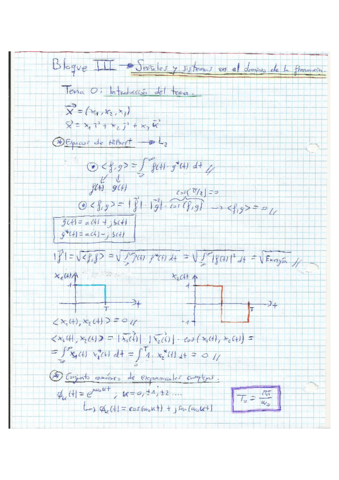 Bloque III → Señales y sistemas en el dominio de la frecuencia
Tema 0: Introducción del tema.
x⃗ = (x₁, x₂, x₃)
x⃗ = x₁ i⃗ + x₂ j⃗ + x₃ k⃗
Espacios de Hilbert → L₂
<f, g> = ∫ f(t) · g*(t) dt //
f(t) g(t)
cos(π/2) = 0
<f, g> = |f⃗| · |g⃗| · cos(f, g) → <f, g> = 0 //
g(t) = a(t) + j b(t)
g*(t) = a(t) - j b(t)
|f⃗| = √<f, f> = √∫ f(t) · f*(t) dt = √∫ |f(t)|² dt = √Energía //
x₁(t) x₂(t)
1 1
T t T t
-1
<x₁(t), x₂(t)> = 0 //
<x₁(t), x₂(t)> = |x₁(t)| · |x₂(t)| · cos(x₁(t), x₂(t)) =
= ∫ x₁(t) · x₂*(t) dt = ∫ 1 · x₂*(t) dt = 0 //
Conjunto de exponenciales complejas
ϕₖ(t) = e^{jω₀kt}, k = 0, ±1, ±2 ...
↳ ϕₖ(t) = cos(ω₀kt) + j sen(ω₀kt)
T₀ = 2π/ω₀